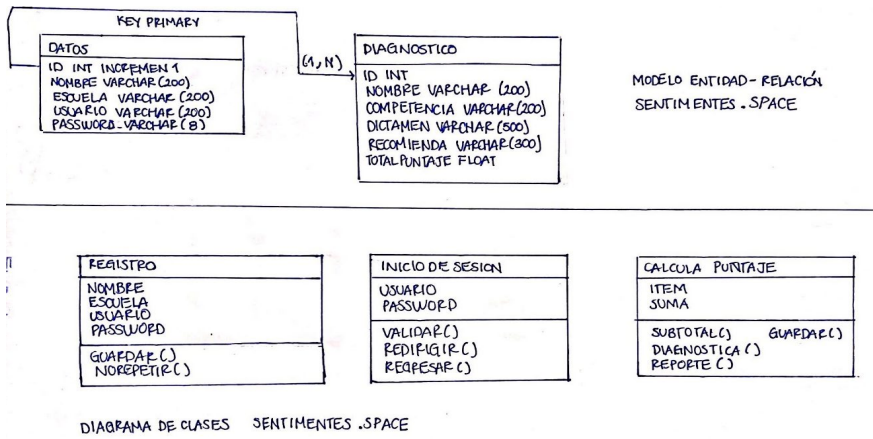 KEY PRIMARY
DATOS
ID INT INCREMEN 1
NOMBRE VARCHAR (200)
ESCUELA VARCHAR (200)
USUARIO VARCHAR (200)
PASSWORD-VARCHAR (8)
(1, N)
DIAGNOSTICO
ID INT
NOMBRE VARCHAR (200)
COMPETENCIA VARCHAR (200)
DICTAMEN VARCHAR (500)
RECOMIENDA VARCHAR (300)
TOTAL PUNTAJE FLOAT
MODELO ENTIDAD-RELACIÓN
SENTIMENTES.SPACE
REGISTRO
NOMBRE
ESCUELA
USUARIO
PASSWORD
GUARDAR()
NOREPETIR()
INICIO DE SESION
USUARIO
PASSWORD
VALIDAR()
REDIRIGIR()
REGRESAR()
CALCULA PUNTAJE
ITEM
SUMA
SUBTOTAL() GUARDAR()
DIAGNOSTICA()
REPORTE()
DIAGRAMA DE CLASES SENTIMENTES.SPACE